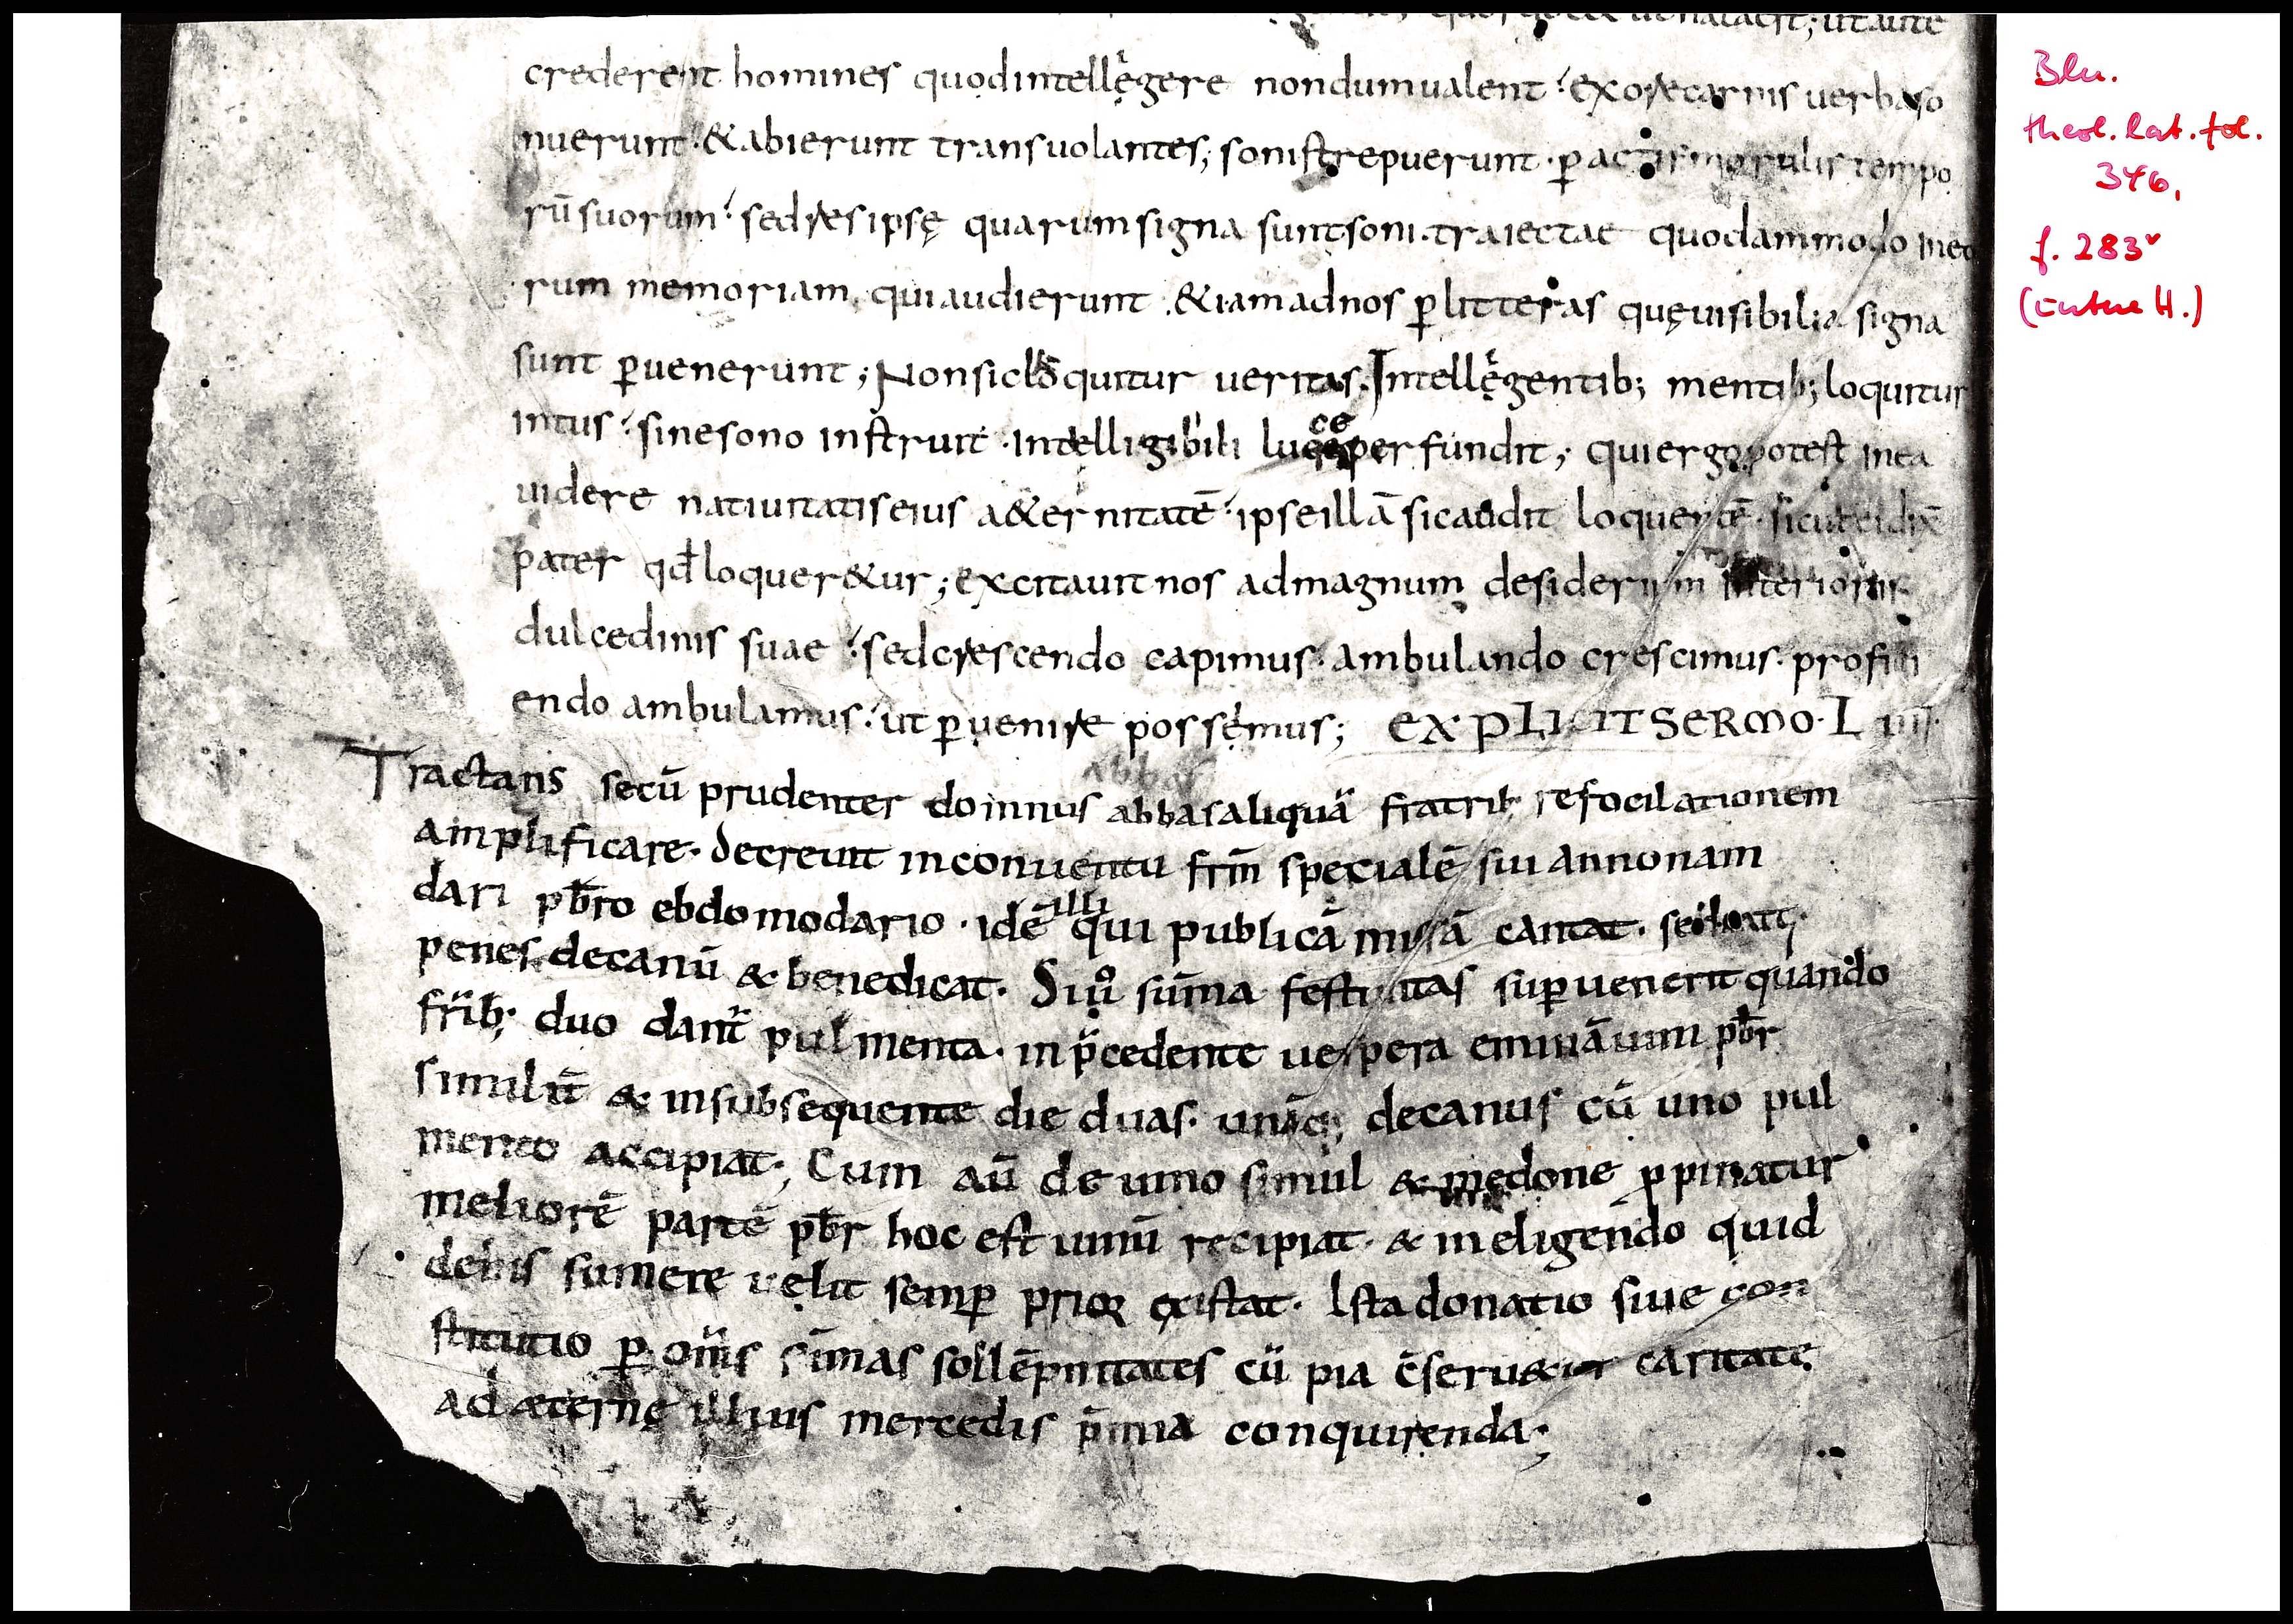 crederent homines quodintellegere nondumualent exorecarnis uerbaso
nuerunt &abierunt transuolantes; sonistrepuerunt p̄ actis morulis tempo
rū suorum sedresipsę quarumsigna suntsoni traiectae quodammodo
rum memoriam quiaudierunt &iamadnos p̄ litteras quęuisibilia signa
sunt p̄uenerunt; Nonsic loquitur ueritas. Intellegentib; mentib; loquitur
intus sinesono instruit intelligibili luce perfundit; quiergopotest inea
uidere natiuitatiseius a&ernitatē ipseillā sicaudit loquentē sicuteidix̄
pater qđ loquer&ur; excitauit nos admagnum desiderium interioris
dulcedinis suae sedcrescendo capimus ambulando crescimus profici
endo ambulamus ut p̄uenire possemus; EXPLICIT SERMO LIII
abbas
Tractans secū prudenter domnus abbas aliquā fratrib; refocilationem
amplificare. Decreuit inconuentu frm̄ specialē sui annonam
dari pb̄ro ebdomodario. idē illi qui publicā missā cantat.
penes decanū & benedicat. Siů sūma festiuitas sup̄uenerit quando
frīb; duo dant̄ pulmenta. in p̄cedente uespera eminā uini pb̄r
similit̄ & insubsequente die duas. unāq; decanus cū uno pul
mento accipiat; Cum aū de uino simul & medone p̄pinatur
meliorē partē pb̄r hoc est uinū recipiat. & ineligendo quid
debis sumere uelit semp̄ prior existat. Ista donatio siue con
stitutio p̄ om̄s sūmas sollēpnitates cū pia c̄seru&ur caritate
ad æternę illius mercedis p̄mia conquirenda;
Bln.
theol. lat. fol.
346,
f. 283v